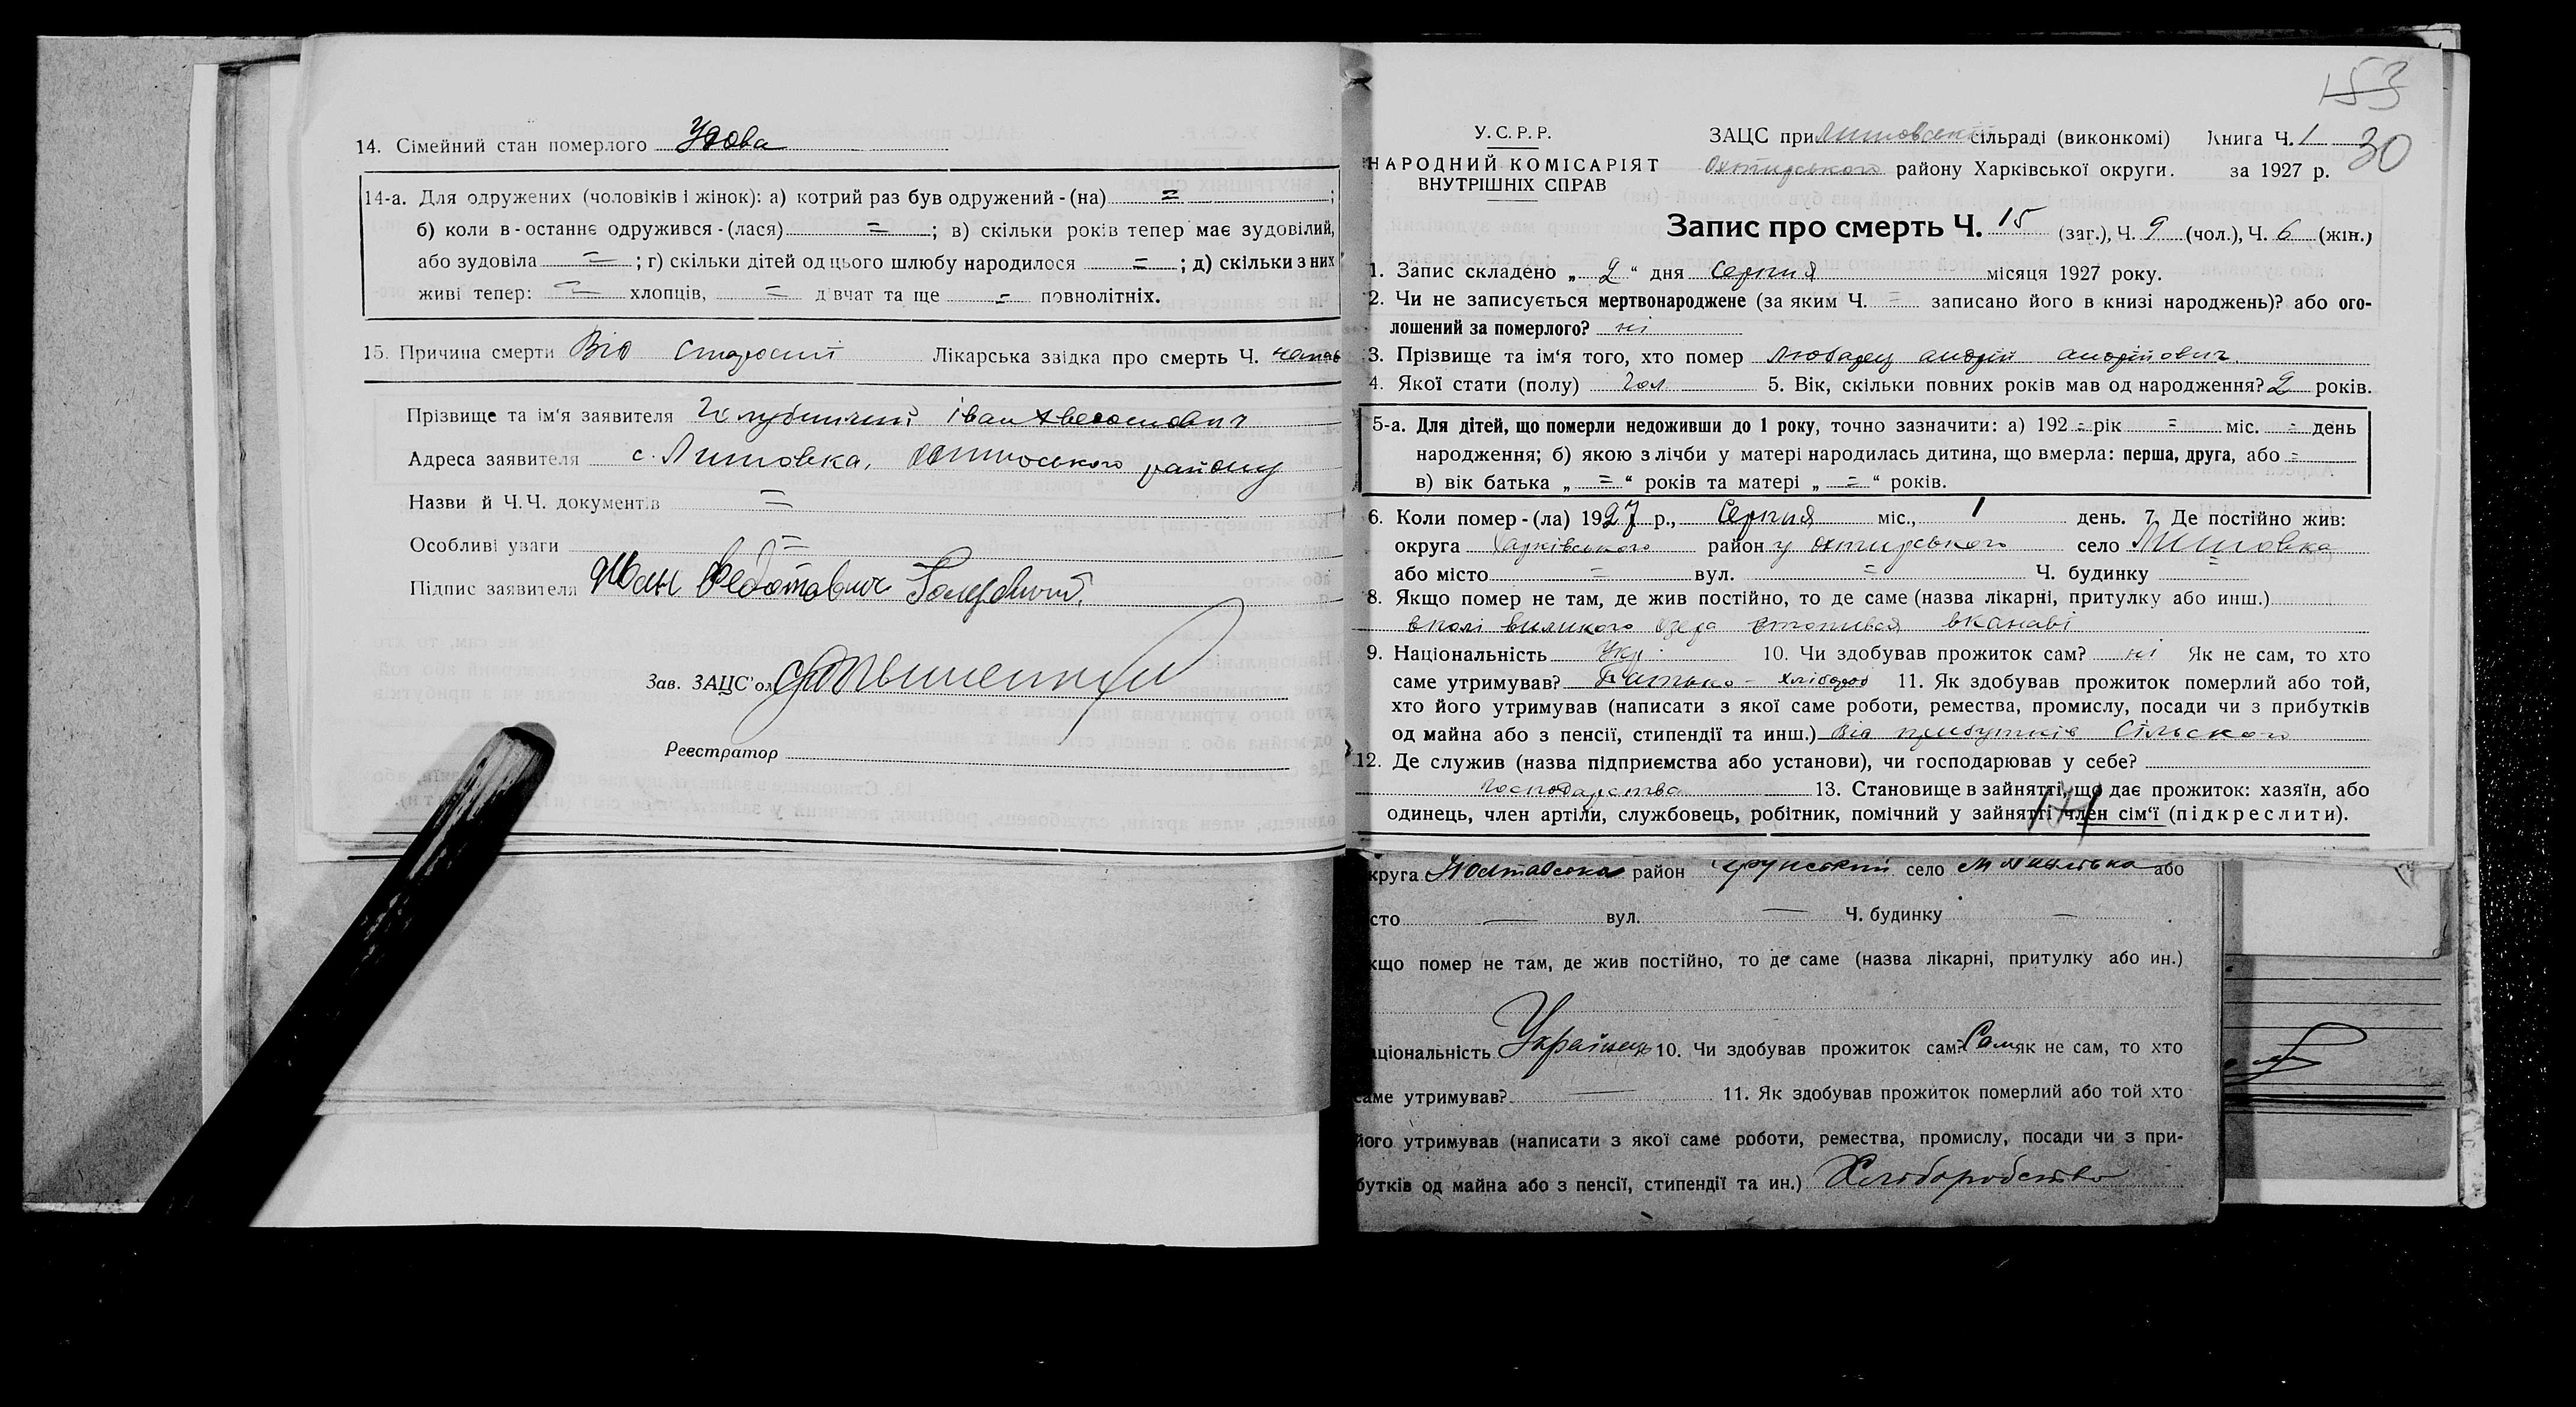 14. Сімейний стан померлого Удова
14-а. Для одружених (чоловіків і жінок): а) котрий раз був одружений-(на) = ;
б) коли в-останнє одружився-(лася) = ; в) скільки років тепер має зудовілий,
або зудовіла = ; г) скільки дітей од цього шлюбу народилося = ; д) скільки з них
живі тепер: = хлопців, = дівчат та ще = повнолітніх.
15. Причина смерти Від старости Лікарська звідка про смерть Ч. немає
Прізвище та ім'я заявителя іван
Адреса заявителя с. Литовка, району
Назви й Ч.Ч. документів =
Особливі уваги =
Підпис заявителя Иван Федотович
Зав. ЗАЦС'ом
Реєстратор
153
У.С.Р.Р.
НАРОДНИЙ КОМІСАРІЯТ
ВНУТРІШНІХ СПРАВ
ЗАЦС при Литовській сільраді (виконкомі) Книга Ч. 1 30
Охтирського району Харківської округи. за 1927 р.
Запис про смерть Ч. 15 (заг.), Ч. 9 (чол.), Ч. 6 (жін.)
1. Запис складено „ 2 “ дня Серпня місяця 1927 року.
2. Чи не записується мертвонароджене (за яким Ч. = записано його в книзі народжень)? або ого-
лошений за померлого? ні
3. Прізвище та ім'я того, хто помер андрій андрійович
4. Якої стати (полу) чол 5. Вік, скільки повних років мав од народження? 2 років.
5-а. Для дітей, що померли недоживши до 1 року, точно зазначити: а) 192 = рік = міс. = день
народження; б) якою з лічби у матері народилась дитина, що вмерла: перша, друга, або =
в) вік батька „ = “ років та матері „ = “ років.
6. Коли помер-(ла) 1927 р., Серпня міс., 1 день. 7. Де постійно жив:
округа Харківського район у Охтирського село Литовка
або місто = вул. = Ч. будинку =
8. Якщо помер не там, де жив постійно, то де саме (назва лікарні, притулку або инш.)
вполі великого озера втопився вканаві
9. Національність Укр. 10. Чи здобував прожиток сам? ні Як не сам, то хто
саме утримував? Батько - хлібороб 11. Як здобував прожиток померлий або той,
хто його утримував (написати з якої саме роботи, ремества, промислу, посади чи з прибутків
од майна або з пенсії, стипендії та инш.) Від прибутків сільского
12. Де служив (назва підприємства або установи), чи господарював у себе?
господарства 13. Становище в зайнятті, що дає прожиток: хазяїн, або
одинець, член артіли, службовець, робітник, помічний у зайнятті член сім'ї (підкреслити).
171
круга Полтавська район село або
сто — вул. — Ч. будинку —
кщо помер не там, де жив постійно, то де саме (назва лікарні, притулку або ин.)
аціональність Українець 10. Чи здобував прожиток сам? Сам як не сам, то хто
саме утримував? — 11. Як здобував прожиток померлий або той хто
його утримував (написати з якої саме роботи, ремества, промислу, посади чи з при-
бутків од майна або з пенсії, стипендії та ин.) Хліборобство